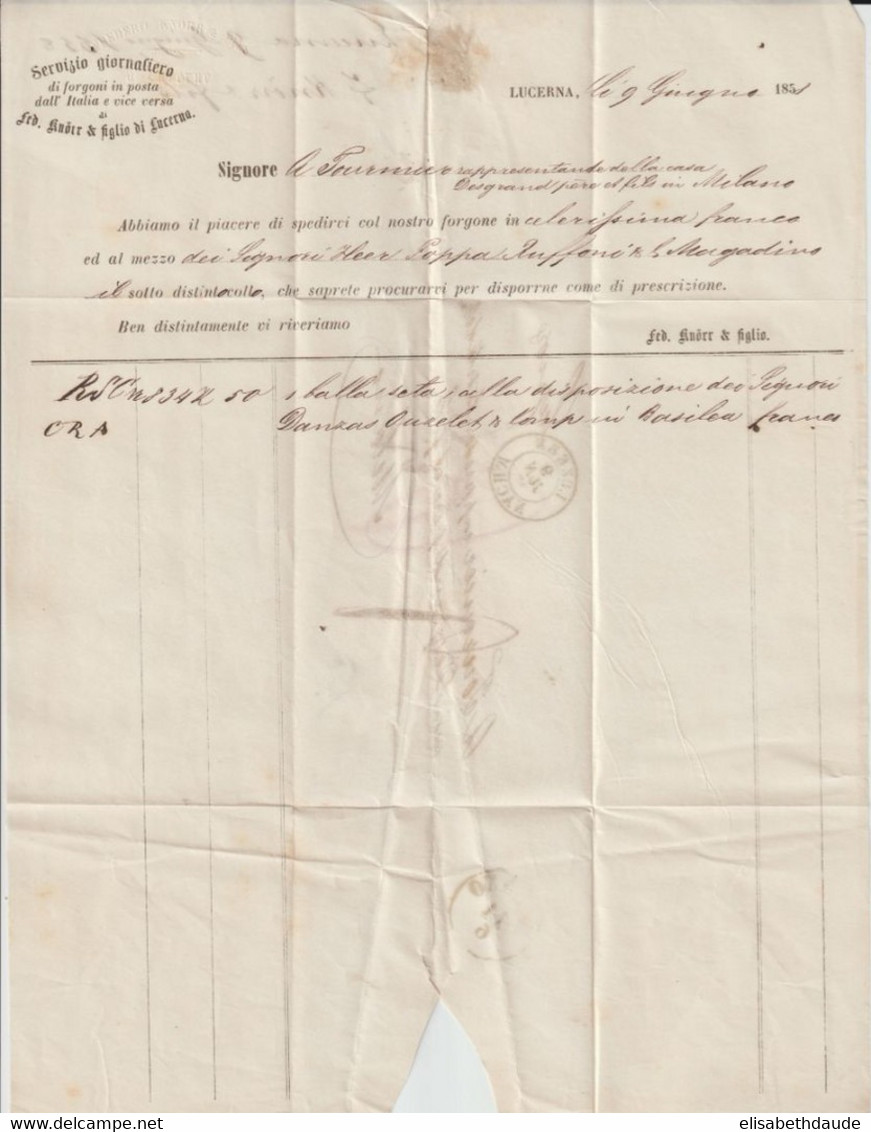 Servizio giornaliero
di forgoni in posta
dall' Italia e vice versa
di
Fed. Knörr & figlio di Lucerna.
LUCERNA, li 9 Giugno 1858
Signore A Fournier rappresentante della casa
Desgrand père et fils in Milano
Abbiamo il piacere di spedirvi col nostro forgone in celerissima franco
ed al mezzo dei Signori Heer Poppa Ruffoni & C Magadino
il sotto distinto collo, che saprete procurarvi per disporrne come di prescrizione.
Ben distintamente vi riveriamo
Fed. Knörr & figlio.
50 1 balla seta, alla disposizione dei Signori
CRA Danzas Ouzelet & Comp in Basilea franco
elisabethdaude